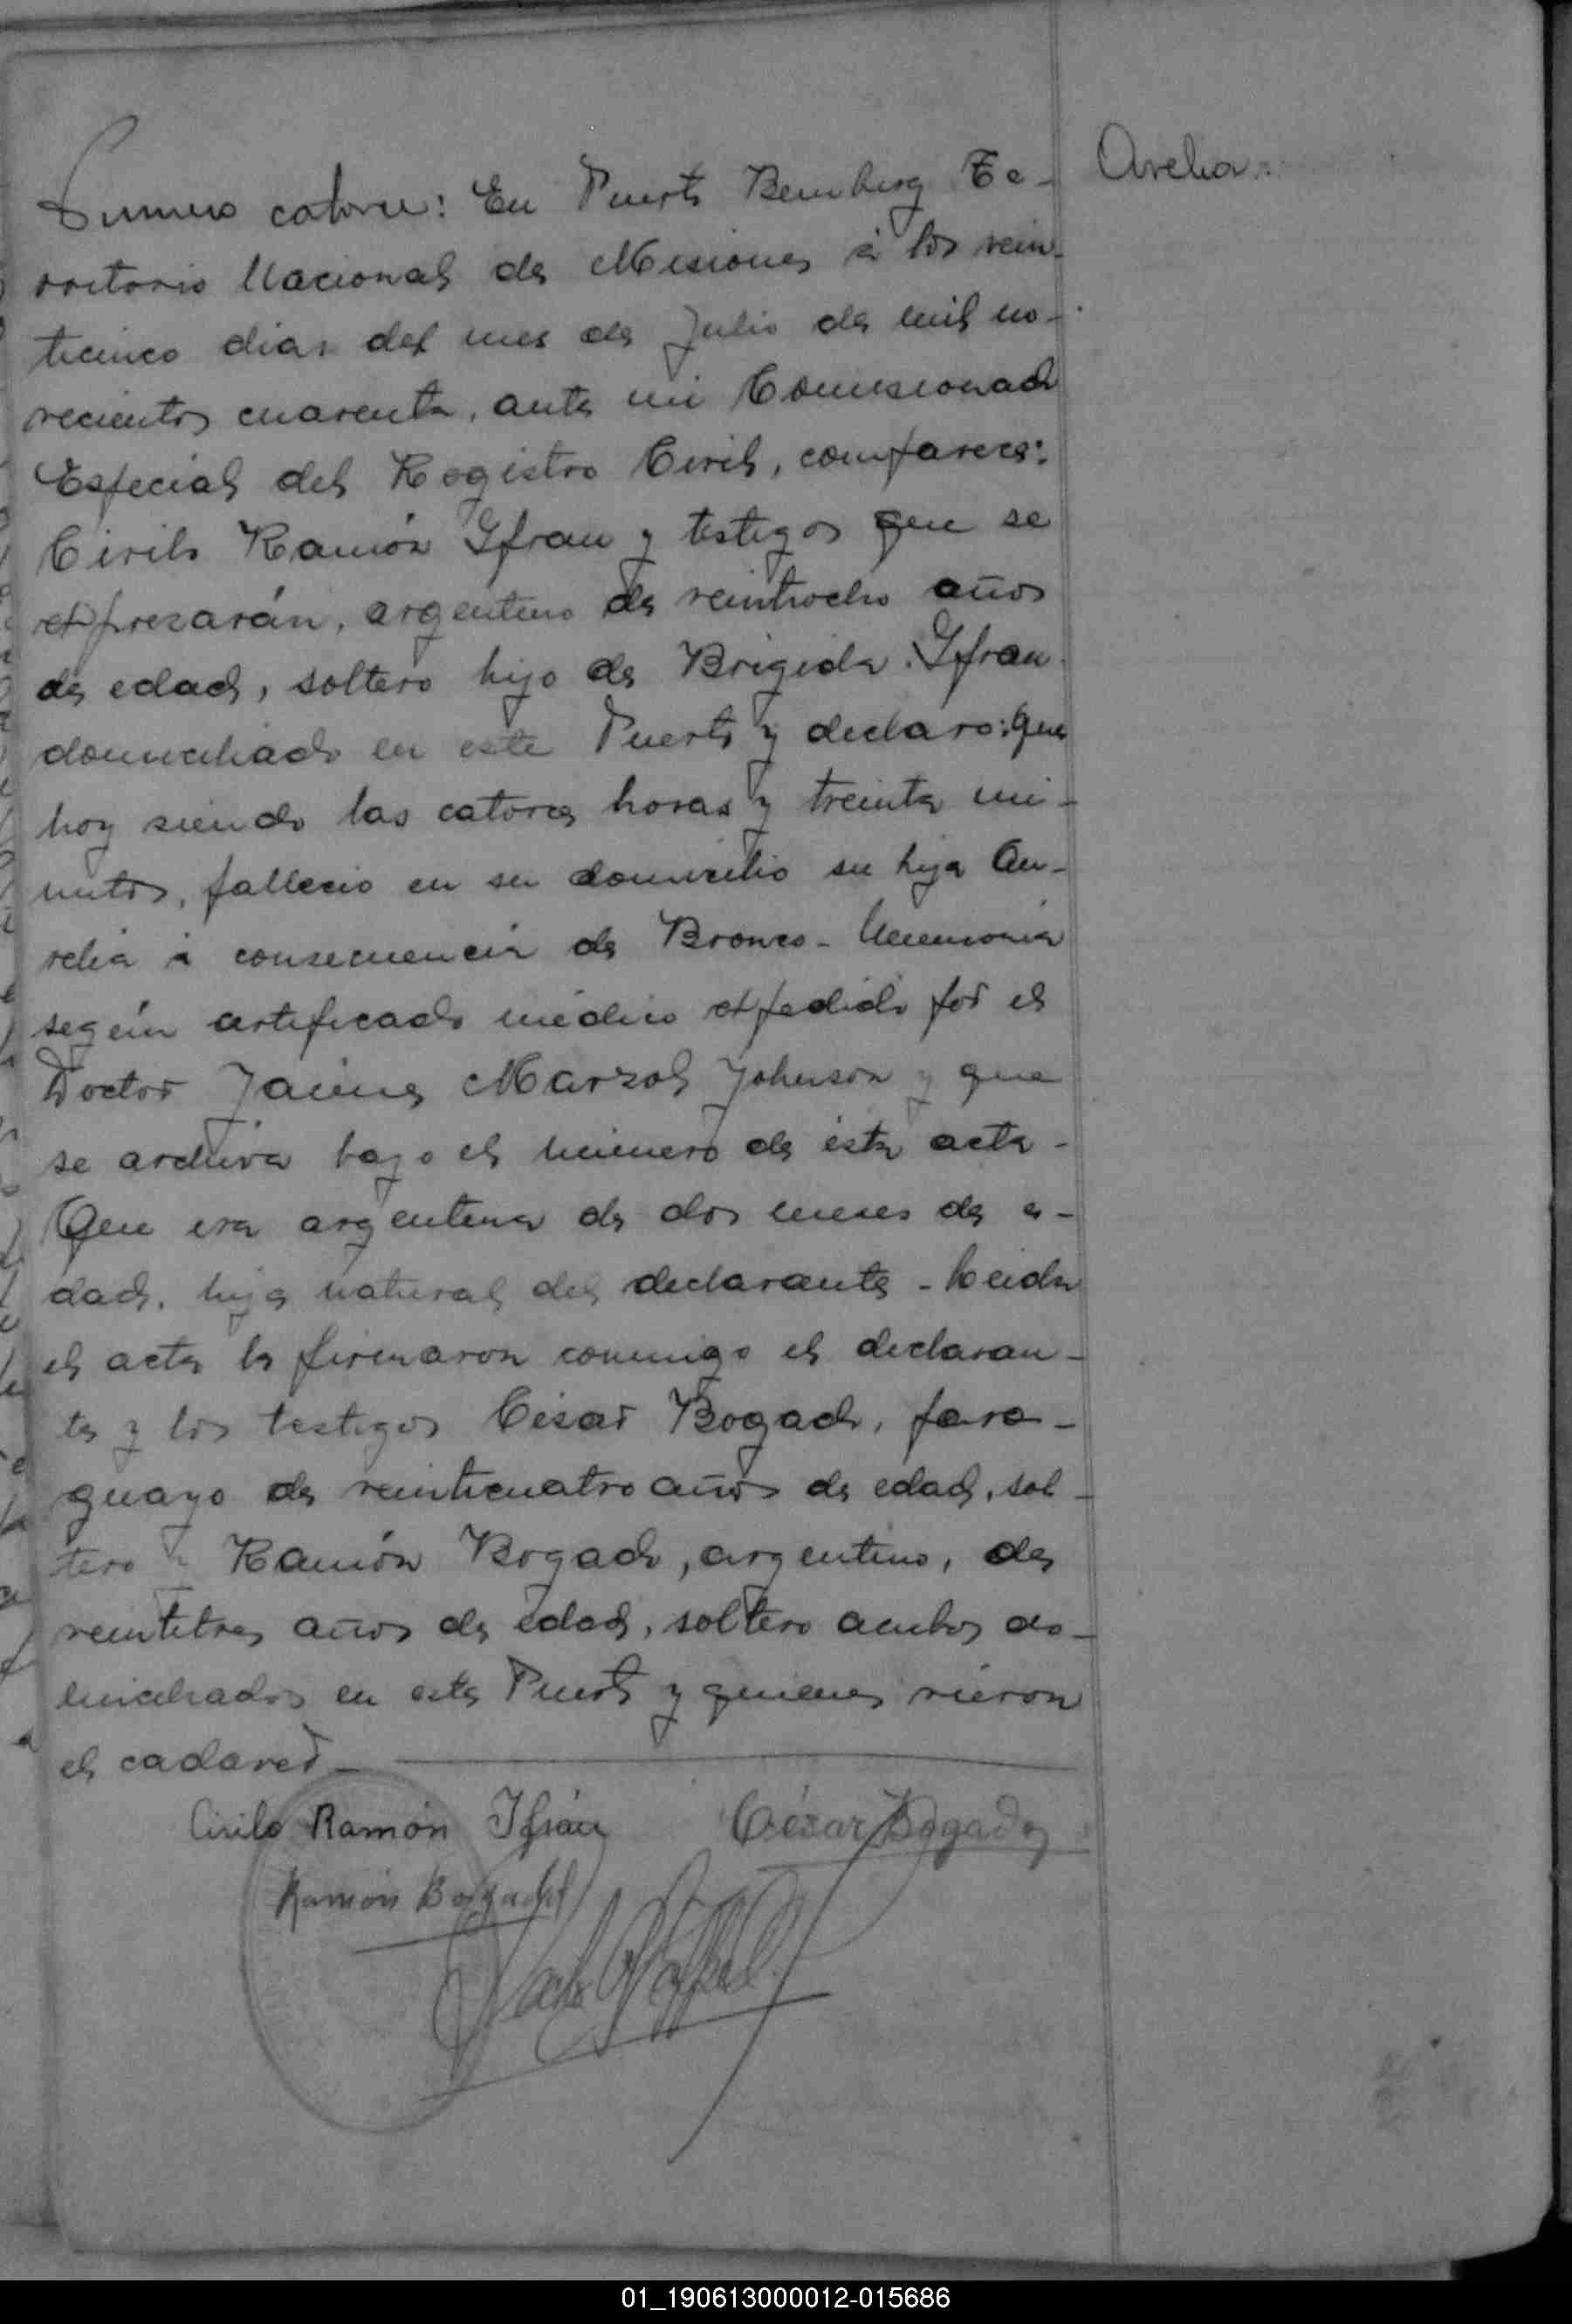 Numero catorce: En Puerto Bemberg Te-
rritorio Nacional de Misiones á los vein-
ticinco dias del mes de Julio de mil no-
vecientos cuarenta, ante mi Comisionado
Especial del Registro Civil, comparece:
Cirilo Ramón Ifran y testigos que se
expresarán, argentino de veintiocho años
de edad, soltero hijo de Brigida Ifran
domiciliado en este Puerto y declaro: Que
hoy siendo las catorce horas y treinta mi-
nutos, fallecio en su domicilio su hija Au-
relia á consecuencia de Bronco-Neumonia
según certificado médico expedido por el
Doctor Jaime Marzol Johnson y que
se archiva bajo el número de ésta acta-
Que era argentina de dos meses de e-
dad, hija natural del declarante - Leida
el acta la firmaron conmigo el declaran-
te y los testigos César Bogado, para-
guayo de veinticuatro años de edad, sol-
tero y Ramón Bogado, argentino, de
veintitres años de edad, soltero ambos do-
miciliados en este Puerto y quienes vieron
el cadaver
Cirilo Ramón Ifrán César Bogado
Ramón Bogado
Arelia
01_190613000012-015686